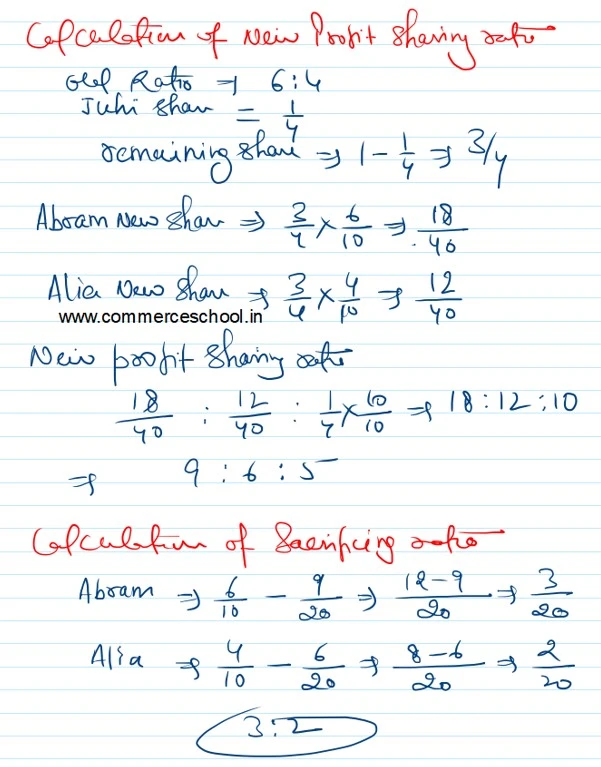 Calculation of New Profit Sharing ratio
Old Ratio ⇒ 6:4
Juhi Share = 1/4
remaining share ⇒ 1 - 1/4 ⇒ 3/4
Abram New Share ⇒ 3/4 × 6/10 ⇒ 18/40
Alia New Share ⇒ 3/4 × 4/10 ⇒ 12/40
www.commerceschool.in
New profit sharing ratio
18/40 : 12/40 : 1/4 × 10/10 ⇒ 18:12:10
⇒ 9 : 6 : 5
Calculation of Sacrificing ratio
Abram ⇒ 6/10 - 9/20 ⇒ 12-9/20 ⇒ 3/20
Alia ⇒ 4/10 - 6/20 ⇒ 8-6/20 ⇒ 2/20
3:2